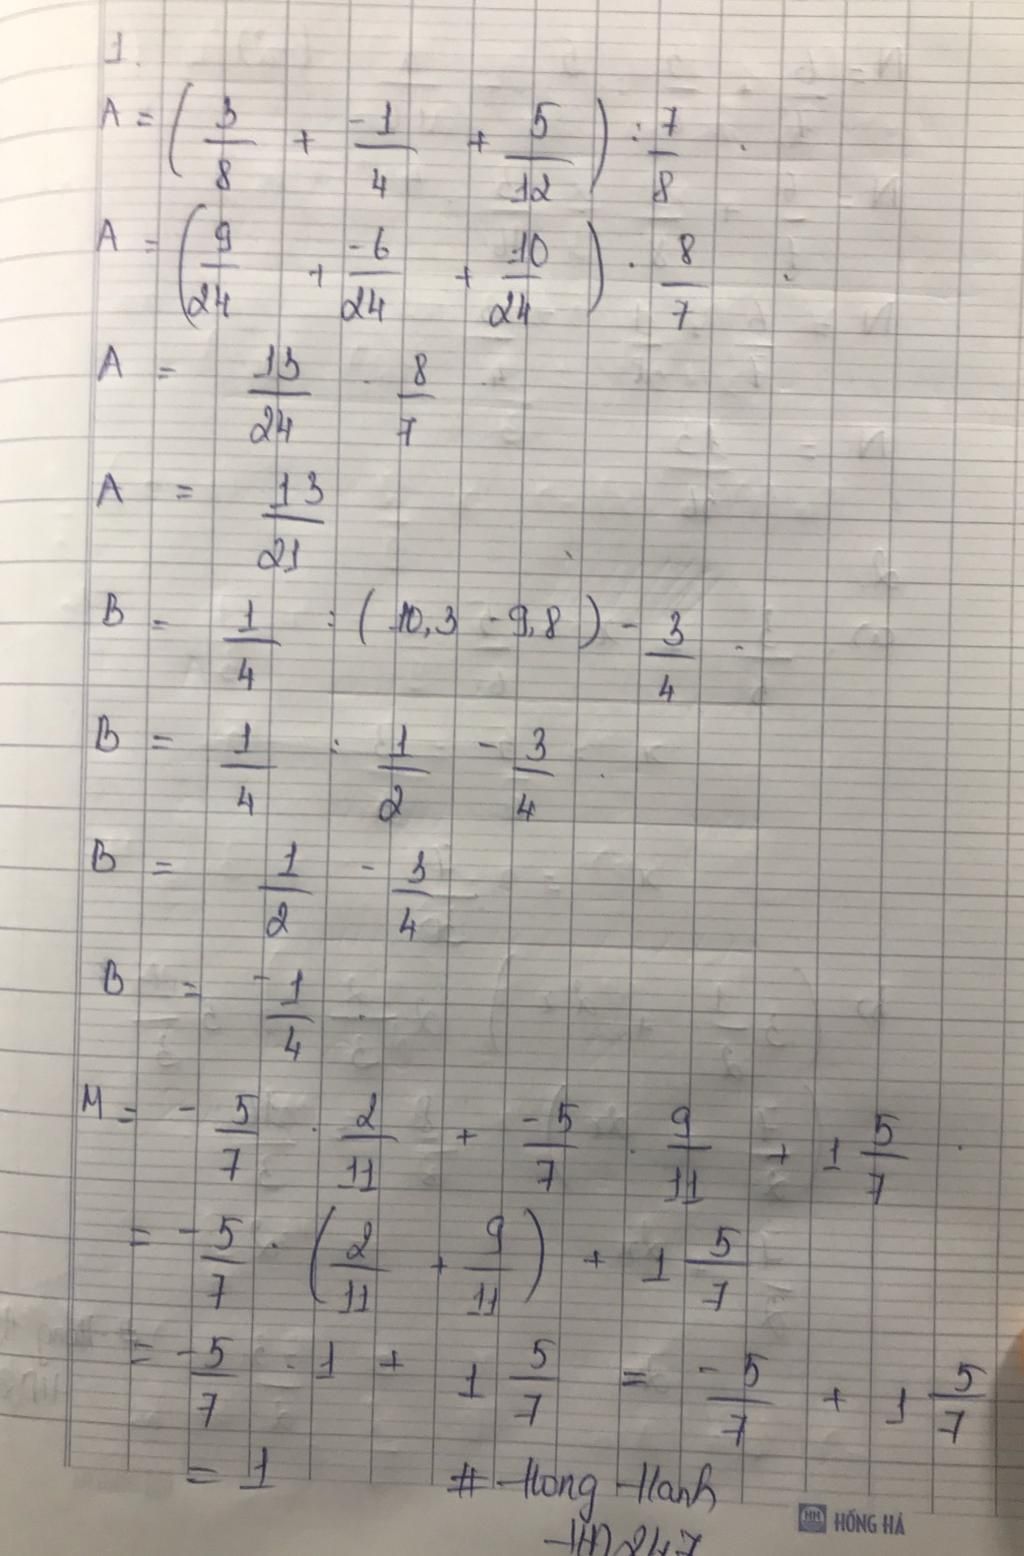 1.
A = ( 3/8 + -1/4 + 5/12 ) : 7/8 .
A = ( 9/24 + -6/24 + 10/24 ) . 8/7 .
A = 13/24 . 8/7
A = 13/21
B = 1/4 : ( 10,3 - 9,8 ) - 3/4 .
B = 1/4 : 1/2 - 3/4 .
B = 1/2 - 3/4
B = -1/4 .
M = - 5/7 . 2/11 + -5/7 . 9/11 + 1 5/7 .
= -5/7 . ( 2/11 + 9/11 ) + 1 5/7
= -5/7 . 1 + 1 5/7 = -5/7 + 1 5/7
= 1 # Hong Hanh
HỒNG HÀ